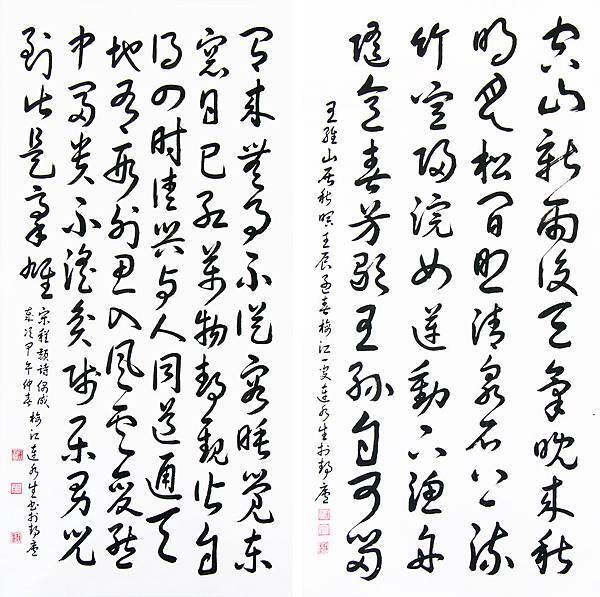 空山新雨後天氣晚來秋
明月松間照清泉石上流
竹喧歸浣女蓮動下漁舟
隨意春芳歇王孫自可留
王維山居秋暝壬辰孟春梅江一叟連水生於靜廬
閒來無事不從容睡覺東
窗日已紅萬物靜觀皆自
得四时佳興与人同道通天
地有形外思入風雲變態
中富貴不淫貧賤樂男兒
到此是豪雄
宋程顥詩偶成
歲次甲午仲春梅江連水生書於靜廬